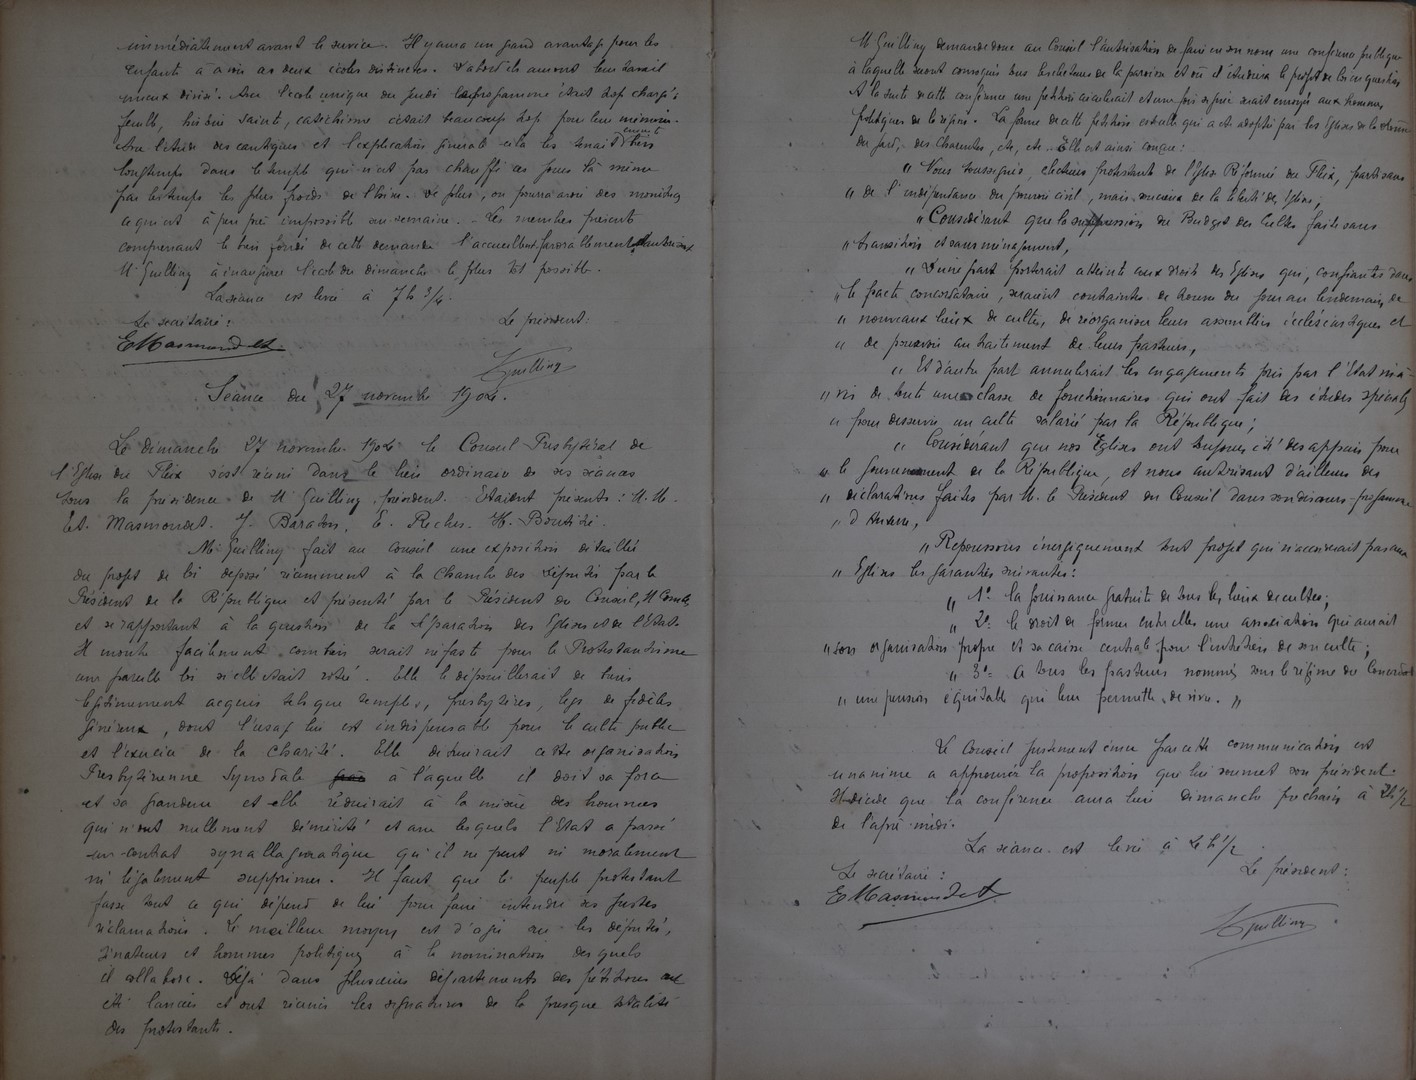 immédiatement avant le service. Il y aura un grand avantage pour les
enfants à avoir ces deux écoles distinctes. D'abord ils auront leur travail
mieux divisé. Avec l'école unique du jeudi le programme était trop chargé;
feuille, histoire sainte, catéchisme c'était beaucoup trop pour leur mémoire.
Avec l'étude des cantiques et l'explication générale cela les tenait vraiment bien
longtemps dans le temple qui n'est pas chauffé ces jours là même
par les temps les plus froids de l'hiver. De plus, on pourra avoir des moniteurs
ce qui est à peu près impossible en semaine. - Les membres présents
comprenant le bien fondé de cette demande l'accueillent favorablement et autorisent
M. Guilling à inaugurer l'école du dimanche le plus tôt possible.
La séance est levée à 7 h 3/4.
Le secrétaire: Le président:
E Masmondet Guilling
Séance du 27 novembre 1904.
Le dimanche 27 novembre 1904 le Conseil Presbytéral de
l'Eglise du Fleix s'est réuni dans le lieu ordinaire de ses séances
sous la présidence de M. Guilling, président. Etaient présents: M.M.
Et. Masmondet. J. Baraton. E. Reclus. H. Boutité.
M. Guilling fait au Conseil une exposition détaillée
du projet de loi déposé récemment à la Chambre des Députés par le
Président de la République et présenté par le Président du Conseil, M Combes
et se rapportant à la question de la Séparation des Eglises et de l'Etat.
Il montre facilement combien serait néfaste pour le Protestantisme
une pareille loi si elle était votée. Elle le dépouillerait de biens
légitimement acquis tels que temples, presbytères, legs de fidèles
généreux, dont l'usage lui est indispensable pour le culte public
et l'exercice de la charité. Elle détruirait cette organisation
Presbytérienne Synodale à laquelle il doit sa force
et sa grandeur et elle réduirait à la misère des hommes
qui n'ont nullement démérité et avec lesquels l'Etat a passé
un contrat synallagmatique qu'il ne peut ni moralement
ni légalement supprimer. Il faut que le peuple protestant
fasse tout ce qui dépend de lui pour faire entendre ses justes
réclamations. Le meilleur moyen est d'agir sur les députés,
sénateurs et hommes politiques à la nomination desquels
il collabore. Déjà dans plusieurs départements des pétitions ont
été lancées et ont réuni les signatures de la presque totalité
des protestants.
M Guilling demande donc au Conseil l'autorisation de faire en son nom une conférence publique
à laquelle seront convoqués tous les électeurs de la paroisse et où il étudiera le projet de loi en question
A la suite de cette conférence une pétition circulerait et une fois signée serait envoyée aux hommes
politiques de la région. La forme de cette pétition est celle qui a été adoptée par les Eglises de la Drôme
du Gard, des Charentes, etc, etc. Elle est ainsi conçue:
" Nous soussignés, électeurs protestants de l'Eglise Réformée du Fleix, partisans
" de l'indépendance du pouvoir civil, mais soucieux de la liberté de l'Eglise,
" Considérant que la suppression du Budget des Cultes faite sans
" transition et sans ménagement,
" D'une part porterait atteinte aux droits des Eglises qui, confiantes dans
" le pacte concordataire, seraient contraintes de trouver du jour au lendemain, de
" nouveaux lieux de cultes, de réorganiser leurs assemblées ecclésiastiques et
" de pourvoir au traitement de leurs pasteurs,
" Et d'autre part annulerait les engagements pris par l'Etat vis-à-
" vis de toute une classe de fonctionnaires qui ont fait des études spéciales
" pour desservir un culte salarié par la République;
" Considérant que nos Eglises ont toujours été des appuis pour
" le Gouvernement de la République, et nous autorisant d'ailleurs des
" déclarations faites par M. le Président du Conseil dans son discours-programme
" d'Auxerre,
" Repoussons énergiquement tout projet qui n'accorderait pas aux
" Eglises les garanties suivantes:
" 1º: la jouissance gratuite de tous les lieux de cultes;
" 2º: le droit de former entr'elles une association qui aurait
" son organisation propre et sa caisse centrale pour l'entretien de son culte;
" 3º: à tous les pasteurs nommés sous le régime du Concordat
" une pension équitable qui leur permette de vivre. "
Le Conseil justement ému par cette communication est
unanime à approuver la proposition que lui soumet son président.
Il décide que la conférence aura lieu dimanche prochain à 2 h 1/2
de l'après-midi.
La séance est levée à 4 h 1/2
Le secrétaire: Le président:
E Masmondet Guilling